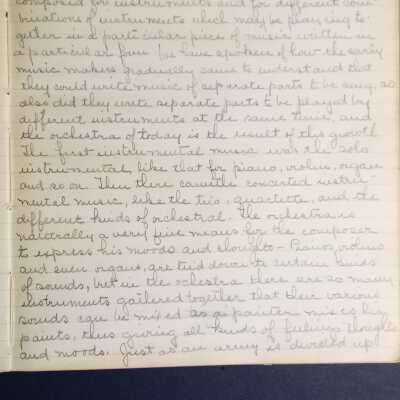 composed for instruments and for different com-
binations of instruments which may be playing to-
gether in a particular piece of music written in
a particular form. We have spoken of how the early
music makers gradually came to understand that
they could write music of separate parts to be sung, so
also did they write separate parts to be played by
different instruments at the same time, and
the orchestra of today is the result of this growth.
The first instrumental music was the solo
instrumental, like that for piano, violin, organ
and so on. Then there came the concerted instru-
mental music, like the trio, quartette, and the
different kinds of orchestral. The orchestra is
naturally a very fine means for the composer
to express his moods and thoughts. Pianos, violins
and even organs, are tied down to certain kinds
of sounds, but in the orchestra there are so many
instruments gathered together that their various
sounds can be mixed as a painter mixes his
paints, thus giving all kinds of feelings thoughts
and moods. Just as an army is divided up